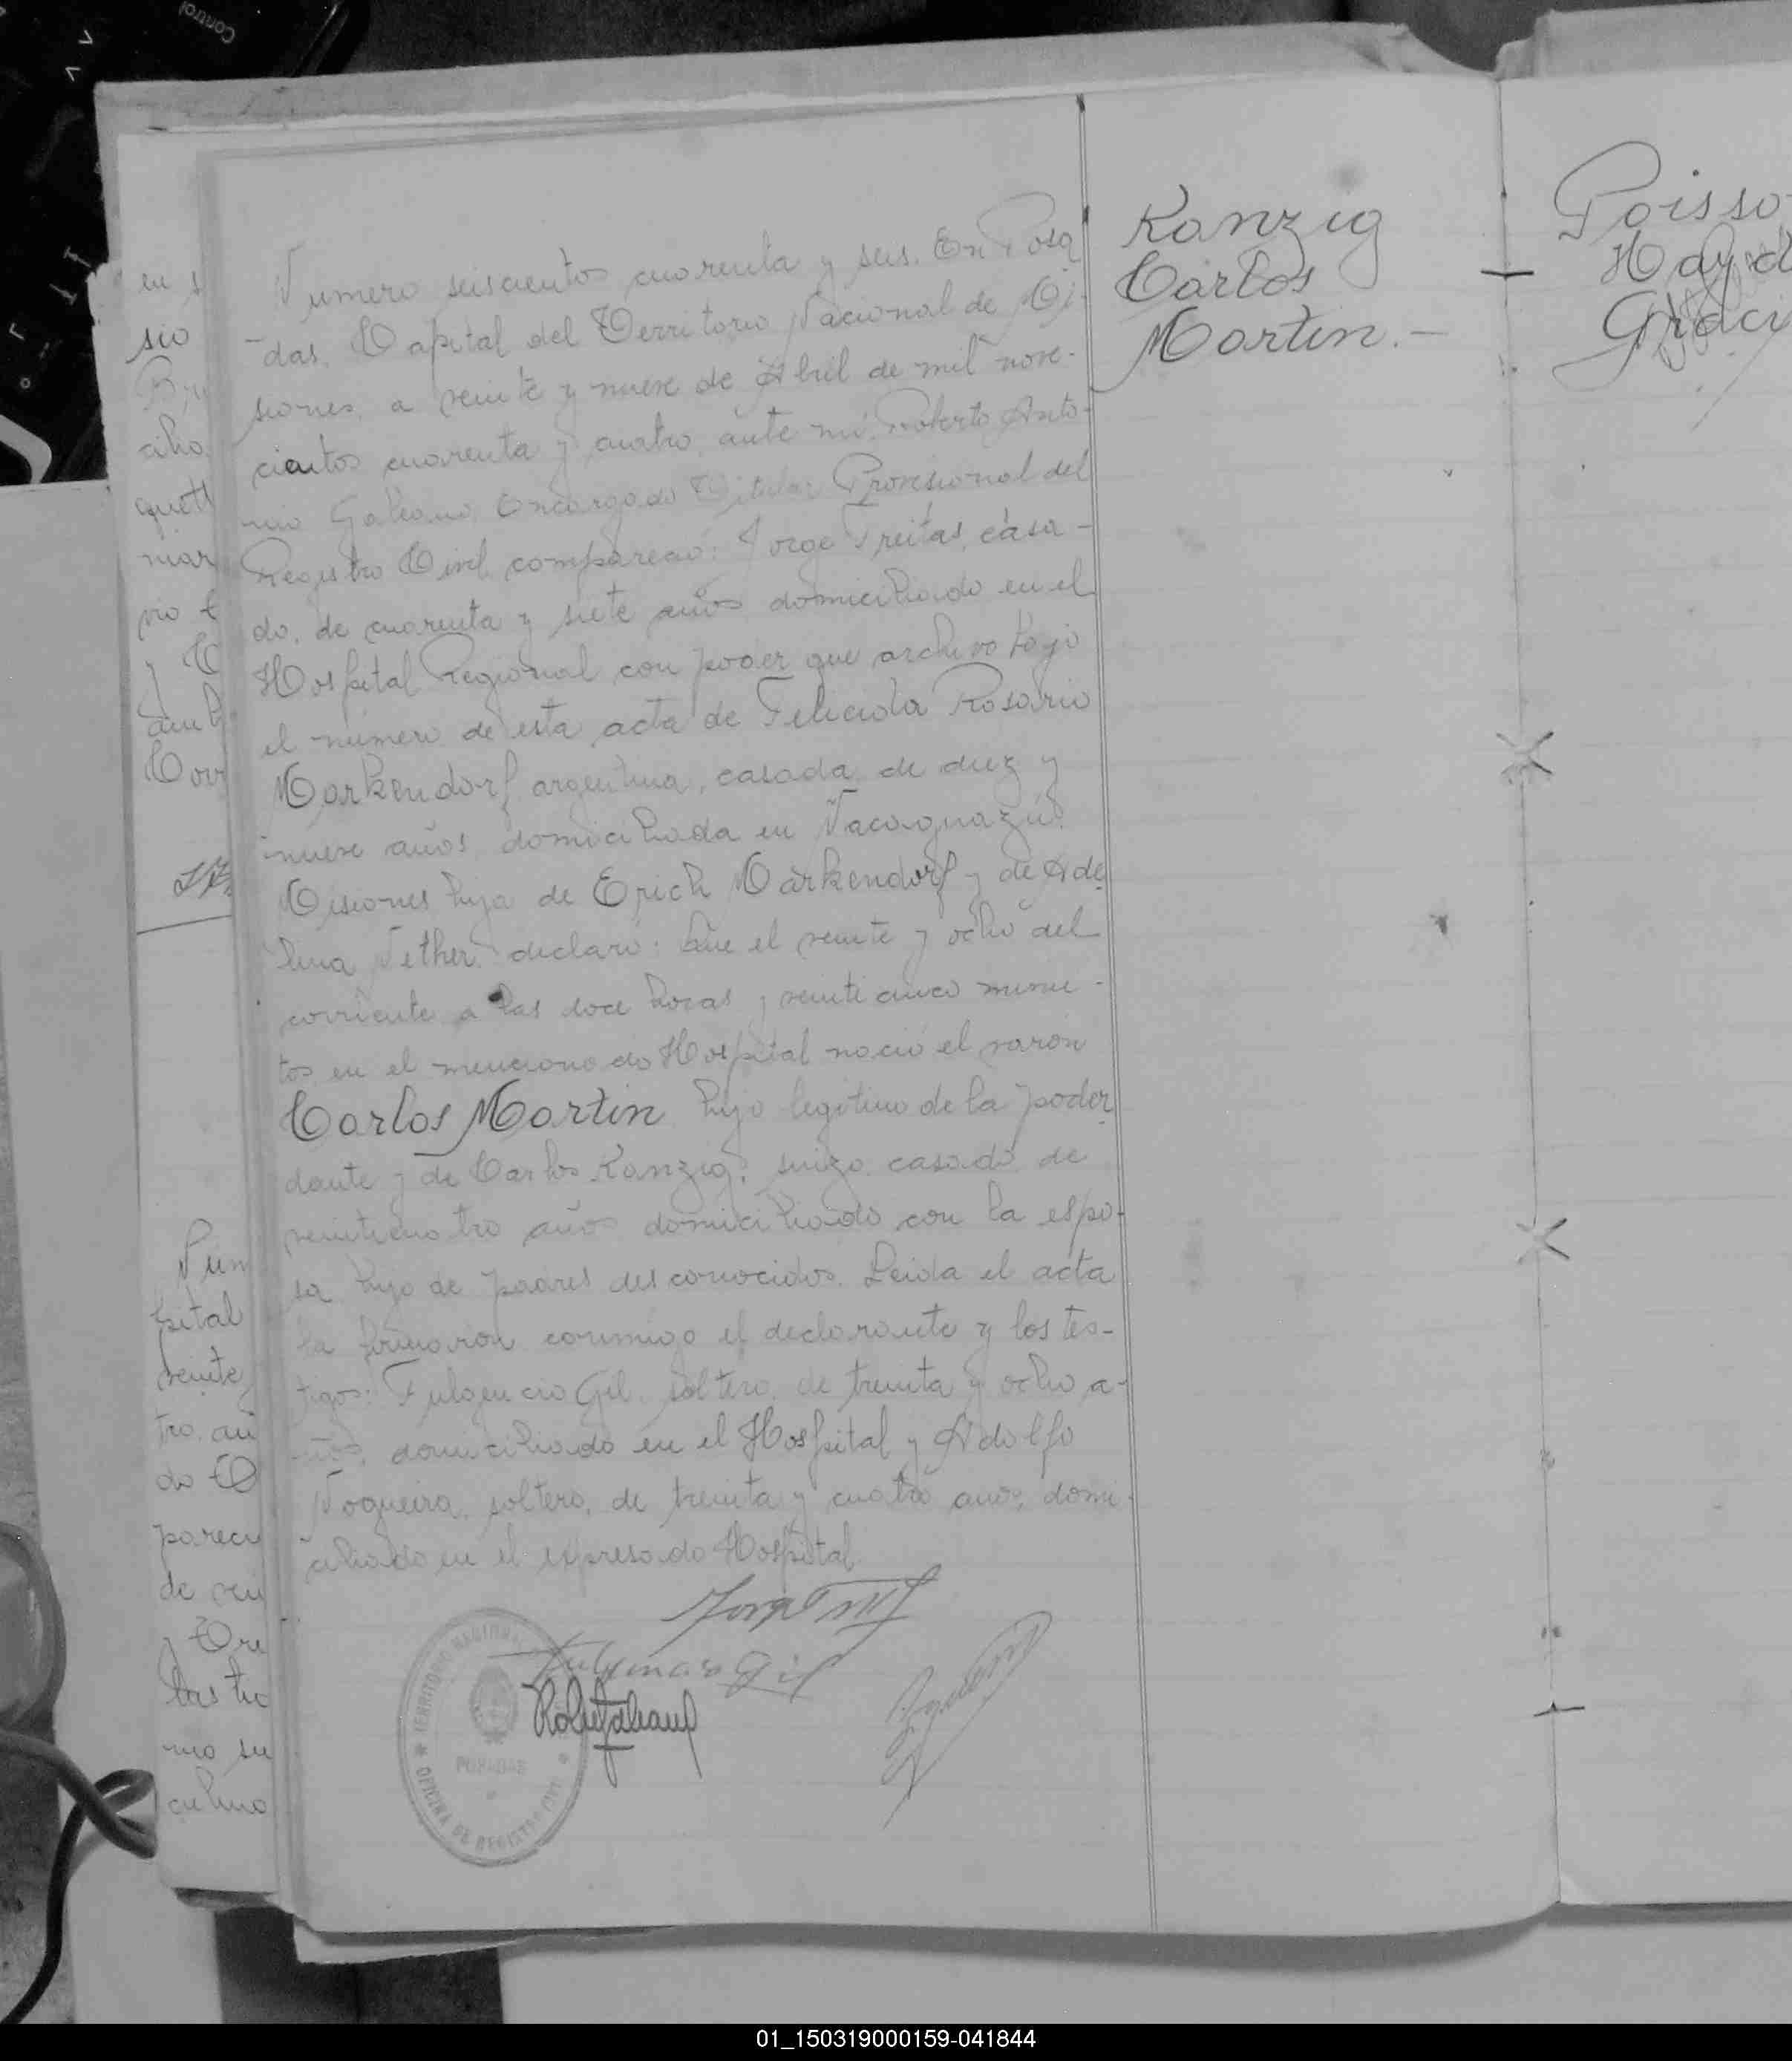 Control
Numero seiscientos cuarenta y seis. En Posa
das, Capital del Territorio Nacional de Mi-
siones, a veinte y nueve de Abril de mil nove-
cientos cuarenta y cuatro, ante mi, Roberto Anto-
nio Galeano, Encargado Titular Provisional del
Registro Civil, compareció: Jorge Freitas, casa-
do, de cuarenta y siete años domiciliado en el
Hospital Regional con poder que archivo bajo
el número de esta acta de Feliciola Rosario
Markendorf argentina, casada, de diez y
nueve años, domiciliada en Ñacaguazú
Misiones hija de Erich Markendorf y de Ade
lina declaró: Que el veinte y ocho del
corriente a las doce horas y veinticinco minu-
tos en el mencionado Hospital nació el varón
Carlos Martin hijo legitimo de la poder
dante y de Carlos Kanzig, suizo, casado de
veinticuatro años domiciliado con la espo-
sa hijo de padres desconocidos. Leida el acta
la firmaron conmigo el declarante y los tes-
tigos: Fulgencio Gil, soltero, de treinta y ocho a-
ños, domiciliado en el Hospital y Adolfo
Nogueira, soltero, de treinta y cuatro años, domi-
ciliado en el expresado Hospital
Fulgencio Gil
TERRITORIO NACIONAL
POSADAS
OFICINA DE REGISTRO CIVIL
Kanzig
Carlos
Martin.-
Poisso
Hayd
Graci
en s
sio
ciho
quett
mar
pio
Corr
Num
pital
veinte
tro. añ
do
parecu
de veu
mo su
culino
01_150319000159-041844